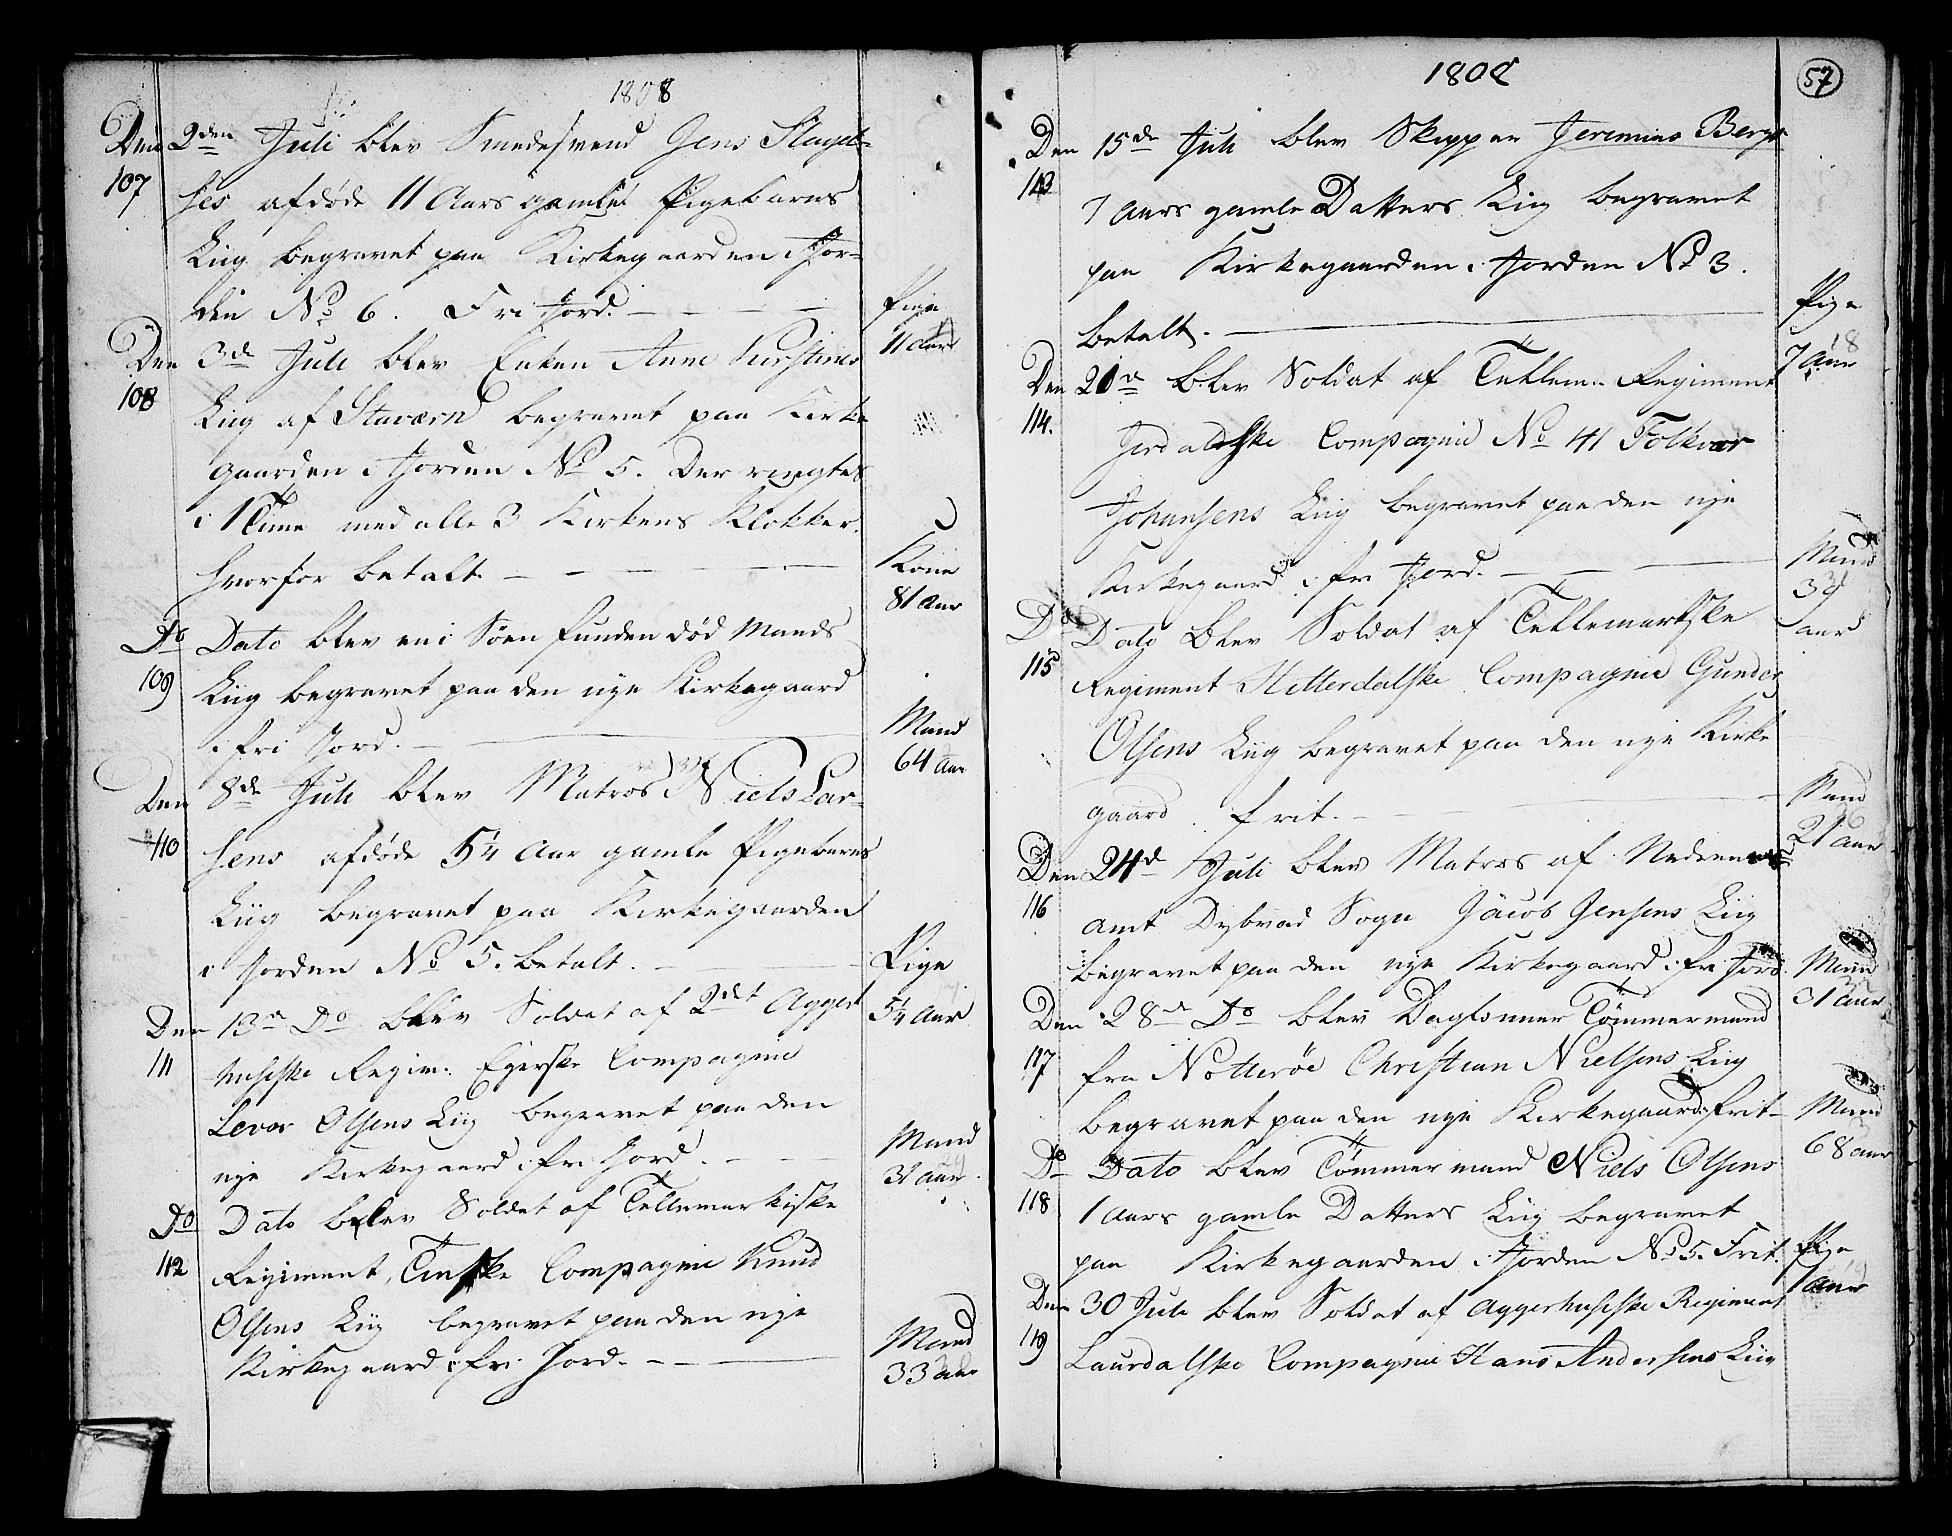 1808
Den 2den Juli blev Smedesvend Jens Slagel-
107
ses afdøde 11 Aars gamlet Pigebarns
Liig begravet paa Kirkegaarden i Jor-
den No 6. Fri Jord. Pige
11 Aar
Den 3de Juli blev Enken Anne Kirstines
108
Liig af Staværn begravet paa Kirke
gaarden i Jorden No 5. Der ringtes
i 1 Time med alle 3 Kirkens Klokker.
hvorfor betalt. Kone
81 Aar
Do Dato blev en i Søen funden død Mands
109
Liig begravet paa den nye Kirkegaard
i fri Jord. Mand
64 Aar
Den 8de Juli blev Matros Niels Lar-
110
sens afdøde 5 1/4 Aar gamle Pigebarns
Liig begravet paa Kirkegaarden
i Jorden No 5. betalt. Pige
5 1/4 Aar
Den 13de Do blev Soldat af 2det Agger
111
husiske Regim: Egerske Compagnie
Levor Olsens Liig begravet paa den
nye Kirkegaard i fri Jord. Mand
31 aar
Do Dato blev Soldat af Tellemarkiske
112
Regiment, Tinske Compagnie Knud
Olsens Liig begravet paa den nye
Kirkegaard i fri Jord. Mand
33 aar
1808
57
Den 15de Juli blev Skipper Jeremias Bergs
113
7 Aars gamle Datters Liig begravet
paa Kirkegaarden i Jorden No 3.
betalt. Pige
7 Aar
Den 21de blev Soldat af Tellem: Regiment
114.
Compagnie No 41 Folkvar
Johansens Liig begravet paa den nye
Kirkegaard i fri Jord. Mand
aar
Do Dato blev Soldat af Tellemarkske
115
Regiment Hitterdalske Compagnie Gunder
Olsens Liig begravet paa den nye Kirke
gaard frit. Mand
21 Aar
Den 24de Juli blev Matros af Nedenæs
116
Amt Dybvad Sogn Jacob Jensens Liig
begravet paa den nye Kirkegaard i fri Jord. Mand
31 Aar
Den 28de Do blev Daglønner Tömmermand
117
fra Nötteröe Christian Nielsens Liig
begravet paa den nye Kirkegaard frit. Mand
68 aar
Do Dato blev Tömmermand Niels Olsens
118
1 Aars gamle Datters Liig begravet
paa Kirkegaarden i Jorden No 5. Frit. Pige
1 Aar
Den 30 Juli blev Soldat af Aggerhusiske Regiment
119
Laurdalske Compagnie Hans Andersens Liig